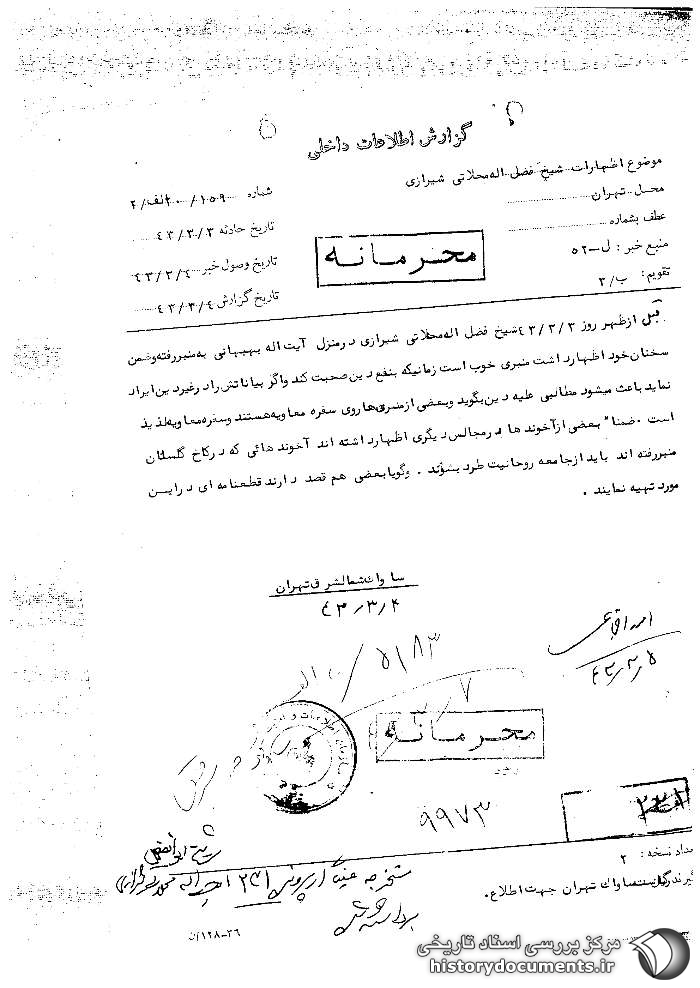 گزارش اطلاعات داخلی
موضوع اظهارات شیخ فضل اله محلاتی شیرازی
محل تهران
عطف بشماره
منبع خبر : ل-۵۲
تقویم : ب/۲
شماره ۱۵۹/۲۰ الف/۲
تاریخ حادثه ۴۳/۳/۳
تاریخ وصول خبر ۴۳/۳/۴
تاریخ گزارش ۴۳/۳/۴
محرمانه
قبل ازظهر روز ۴۳/۳/۳ شیخ فضل اله محلاتی شیرازی درمنزل آیت اله بهبهانی به منبر رفته وضمن
سخنان خود اظهارداشت منبری خوب است زمانیکه بنفع دین صحبت کند واگر بیاناتش رادرغیردین ایراد
نماید باعث میشود مطالبی علیه دین بگوید وبعضی از منبری ها روی سفره معاویه هستند وسفره معاویه لذیذ
است . ضمنا" بعضی ازآخوند ها درمجالس دیگری اظهارداشته اند آخوند هائی که درکاخ گلستان
منبررفته اند باید ازجامعه روحانیت طرد بشوند . وگویا بعضی هم قصد دارند قطعنامه ای دراین
مورد تهیه نمایند .
ساواک شمالشرق تهران
۴۳/۳/۴
۴۳/۳/۵
۵۱۸۳
محرمانه
۹۹۷۳
۲۳۱
تعداد نسخه : ۲
گیرندگان ساواک تهران جهت اطلاع.
۳۶-۱۲۸/ن
مرکز بررسی اسناد تاریخی
historydocuments.ir